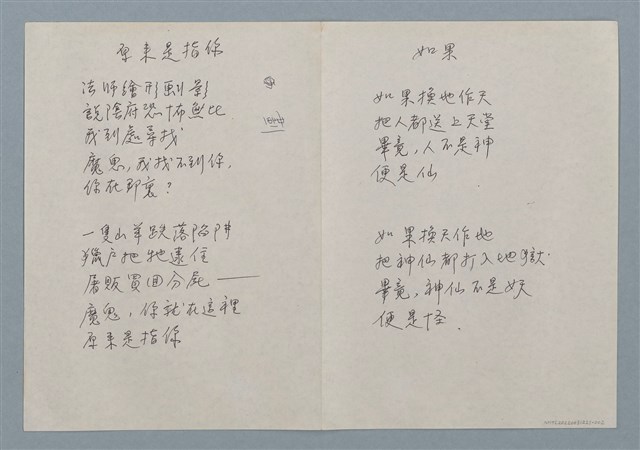 原來是指你
法師繪形劃影
說陰府恐怖無比
我到處尋找
魔鬼，我找不到你，
你在那裏？
一隻山羊跌落陷阱
獵戶把牠逮住
屠販買回分屍——
魔鬼，你就在這裡
原來是指你
如果
如果換地作天
把人都送上天堂
畢竟，人不是神
便是仙
如果換天作地
把神仙都打入地獄
畢竟，神仙不是妖
便是怪．